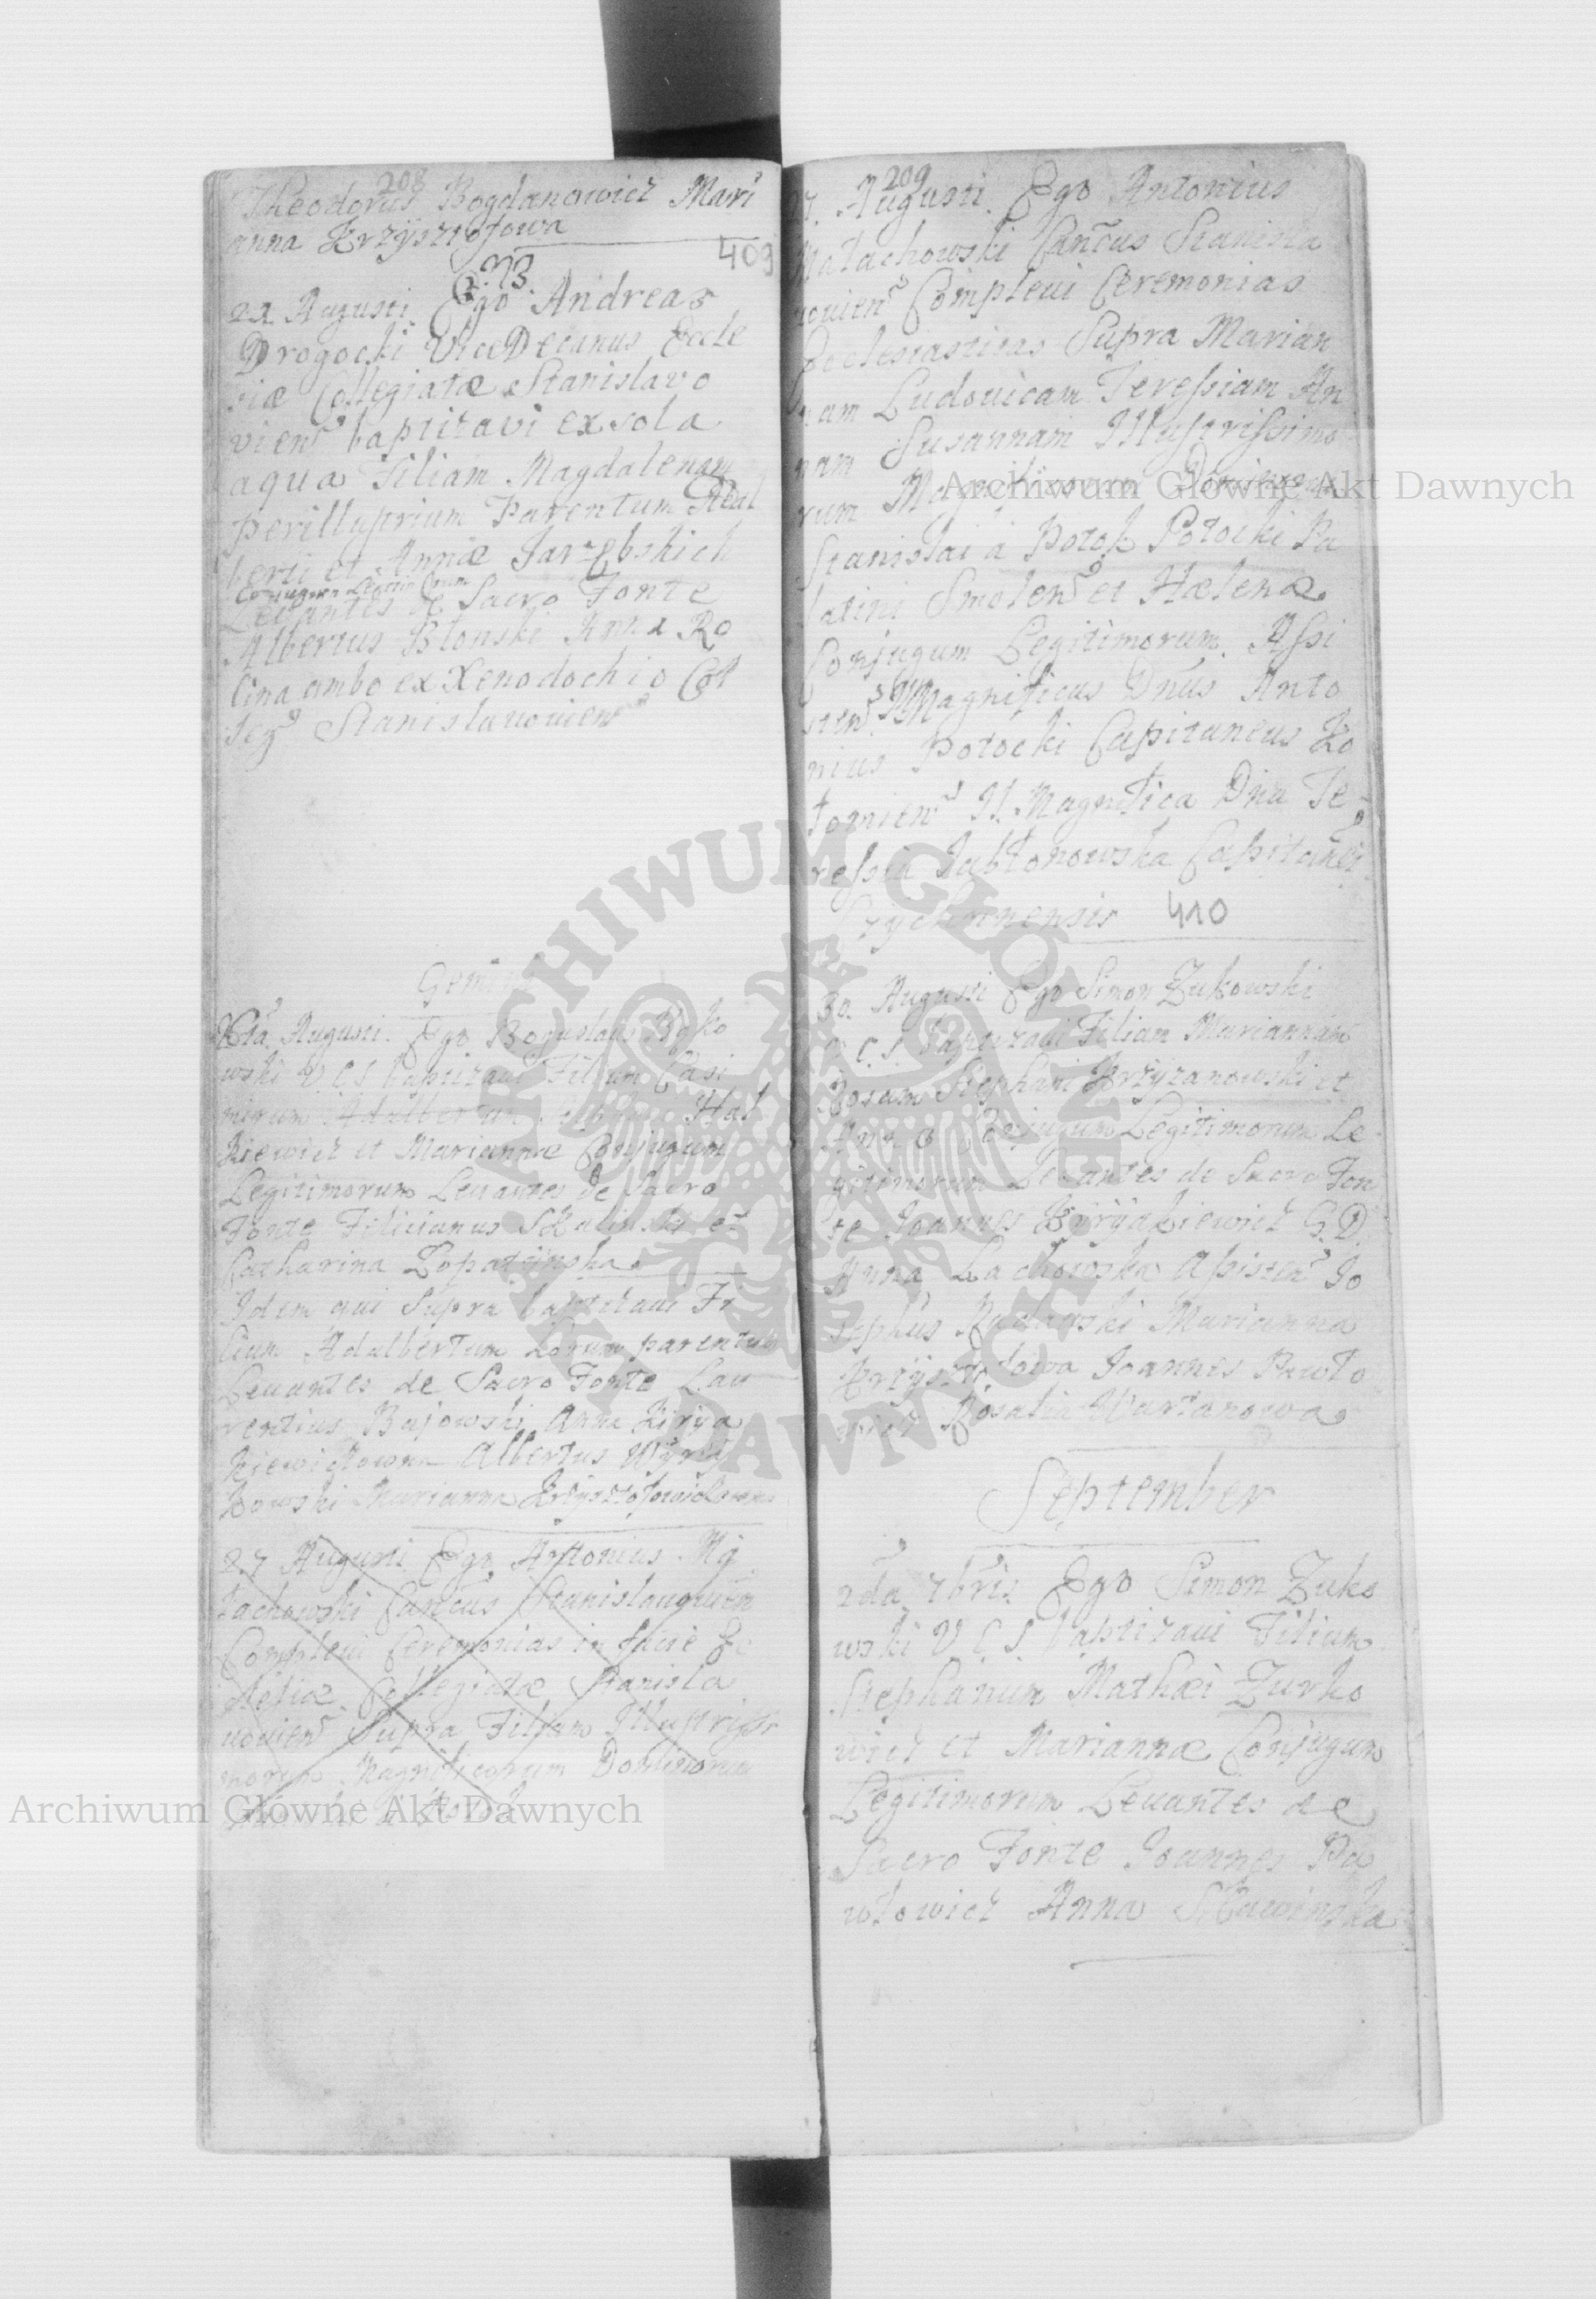 208
Theodorus Bogdanowicz Mari
anna Krzysztofowa
409
22 Augusti Ego Andreas
Drogocki ViceDecanus Eccle
siæ Collegiatæ Stanislavo
vien baptizavi ex sola
aqua Filiam Magdalenam
perillustrium Parentum Adal
berti et Annæ Jarzębskich
Conjugum
Levantes de Sacro Fonte
Albertus Błonski Anna Ro
lina ambo ex Xenodochio Col
leg Stanislauouien
Gemini
Augusti. Ego Boguslaus
wski V C S baptizaui Filium Casi
mirum Adalbertum
kiewicz et Mariannæ Conjugum
Legitimorum Leuantes de Sacro
Fonte Felicianus et
Catharina Łopatynska
Idem qui Supra baptizaui Fi
lium Adalbertum horum parentum
Leuantes de Sacro Fonte Lau
rentius Bajowski Anna Kirya
kiewiczowna Albertus
kowski Marianna
27 Augusti Ego Antonius Ma
łachowski Cancus Stanislauouien
Compleui Ceremonias in facie Ec
clesiæ Collegiatæ Stanisla
uouien Supra Filiam Illustrissi
morum Magnificorum Dominorum
209
27. Augusti. Ego Antonius
Małachowski Cancus Stanisla
uouien Compleui Ceremonias
Ecclesiasticas Supra Marian
nam Ludouicam Teressiam An
nam Susannam Illustrissimo
rum Magnificorum Dominorum
Stanislai a Potok Potocki Pa
latini Smolen et Hælenæ
Conjugum Legitimorum. Assi
sten Magnificus Dnus Anto
nius Potocki Capitaneus Ko
łomien Magnifica Dna Te
ressia Jabłonowska Capitanei
410
30. Augusti Ego Simon Żukowski
V C S baptizaui Filiam Mariannam
Rosam Stephani Krzyzanowski et
Annæ Conjugum Legitimorum Le
gitimorum Leuantes de Sacro Fon
te Joannes Kiryakiewicz G. D.
Anna Lachowska Assisten Jo
sephus Marianna
Krzysztofowa Joannes Pawło
wicz Rosalia Wartanowa
September
2da 7bris Ego Simon Żuko
wski V C S baptizaui Filium
Stephanum Mathæi Żurko
wicz et Mariannæ Conjugum
Legitimorum Leuantes de
Sacro Fonte Joannes Pa
włowicz Anna
Archiwum Główne Akt Dawnych
Archiwum Główne Akt Dawnych
ARCHIWUM GŁÓWNE AKT DAWNYCH